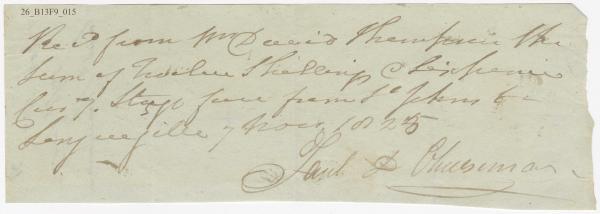 26_B13F9_015
Rec.d from Mr David Thompson the
sum of Twelve Shillings & Sixpence
Cur.y Stage fare from St Johns to
Longueuille 7 Nov 1825
Paul D Cheesman